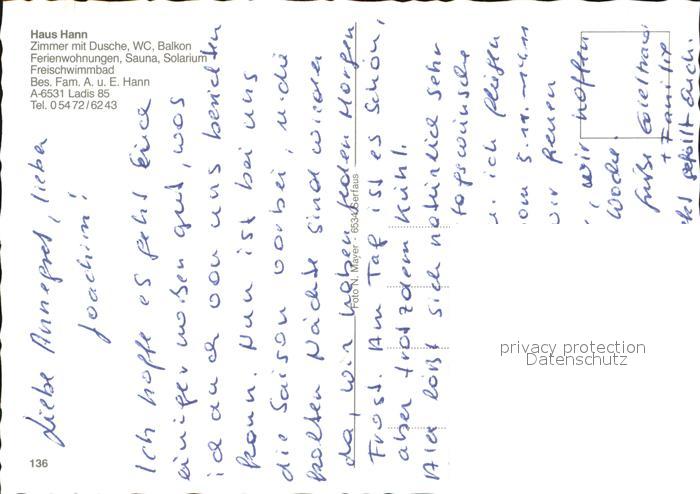 Haus Hann
Zimmer mit Dusche, WC, Balkon
Ferienwohnungen, Sauna, Solarium
Freischwimmbad
Bes. Fam. A. u. E. Hann
A-6531 Ladis 85
Tel. 0 54 72 / 62 43
Liebe Annegret, lieber
Joachim!
Ich hoffe es geht Euch
einiger moßen gut, was
ich auch von uns berichten
kann. Nun ist bei uns
die Saison vorbei, u. die
kalten Nächte sind wieder
da, wir haben jeden Morgen
Frost. Am Tag ist es schön,
aber trotzdem kühl.
läßt sich natürlich sehr
u. ich fliegen
wir freuen
, wir hoffen
Woche.
Grüße
+ Familie
gefällt auch.
Foto N. Mayer - 6534 Serfaus
136
privacy protection
Datenschutz